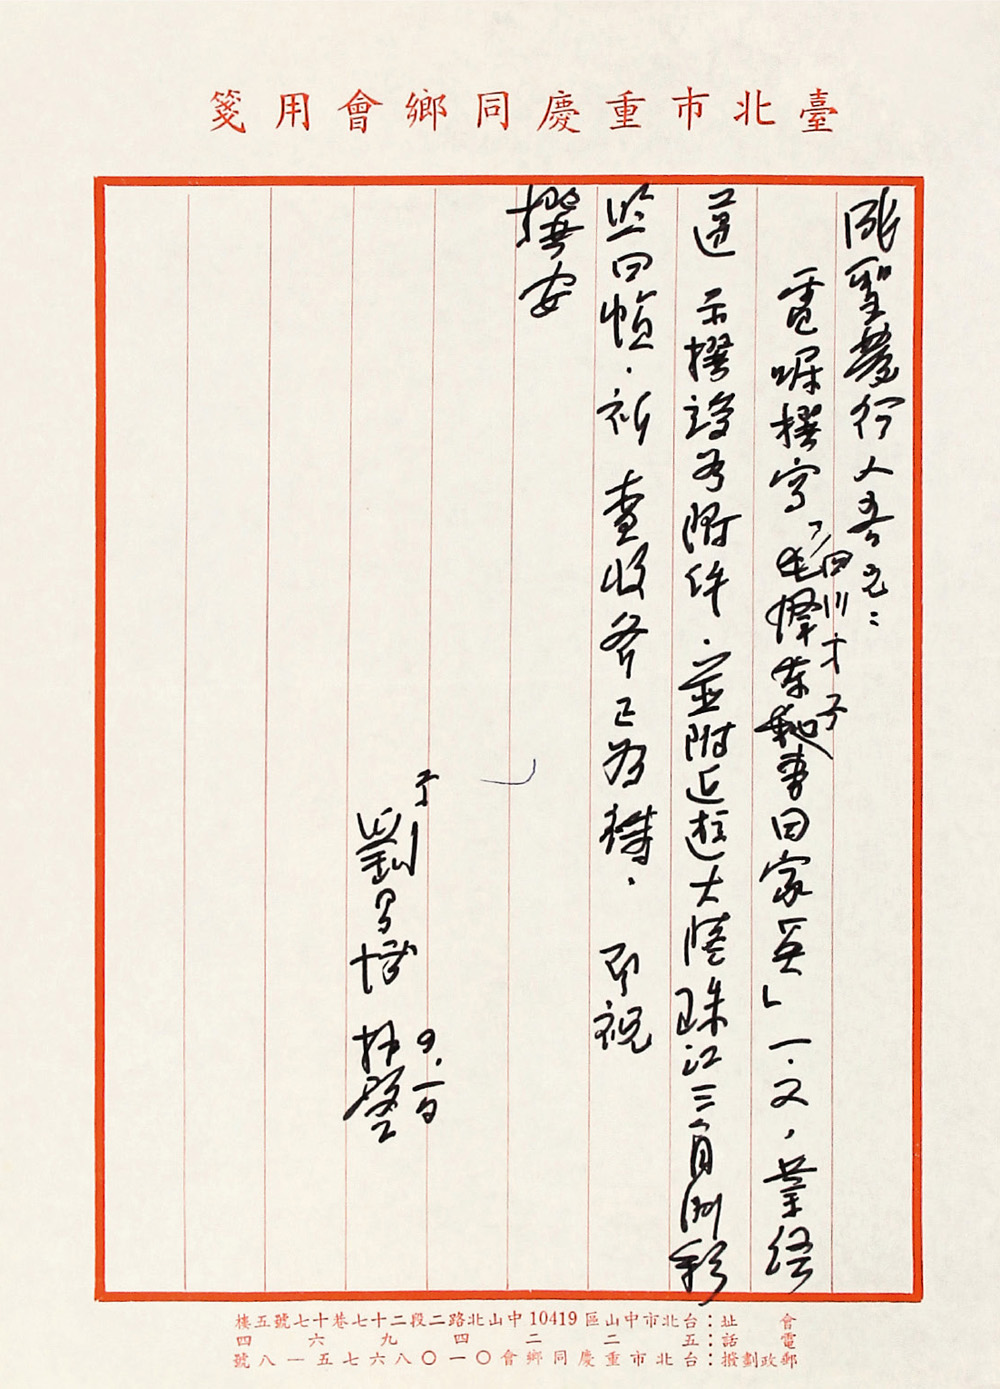 臺北市重慶同鄉會用箋
發行人吾兄：
電囑撰寫「四川才子毛澤東秘書田家英」一文，業經
遵 示撰竣如附件．並附近遊大陸珠江三角洲彩
照四幀．祈 查收斧正為禱． 即祝
撰安
弟
劉昌博 拜啓
會址：台北市中山區10419中山北路二段二十七巷十七號五樓
電話：五二二四九六四
郵政劃撥：台北市重慶同鄉會〇一〇八六七五—八號